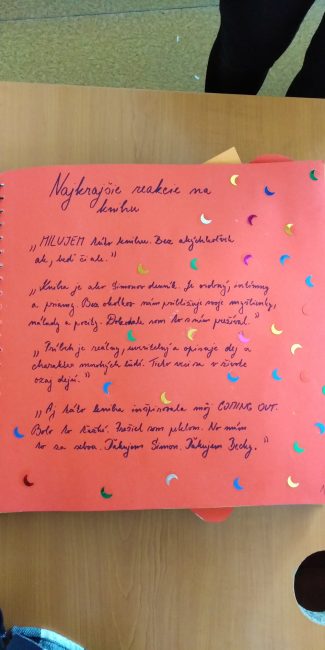 Najkrajšie reakcie na
knihu
„MILUJEM túto knihu. Bez akýchkoľvek
ak, keď či ale."
„Kniha je ako Simonov denník. Je osobný, intímny
a pravý. Bez okolkov nám približuje svoje myšlienky,
nálady a pocity. Dokonale som to s ním prežíval."
„Príbeh je reálny, uveriteľný a opisuje dej a
charakter mnohých ľudí. Tieto veci sa v živote
ozaj dejú."
„Aj táto kniha inšpirovala môj COMING OUT.
Bolo to ťažké. Prešiel som peklom. No mám
to za sebou. Ďakujem Simon. Ďakujem Becky."